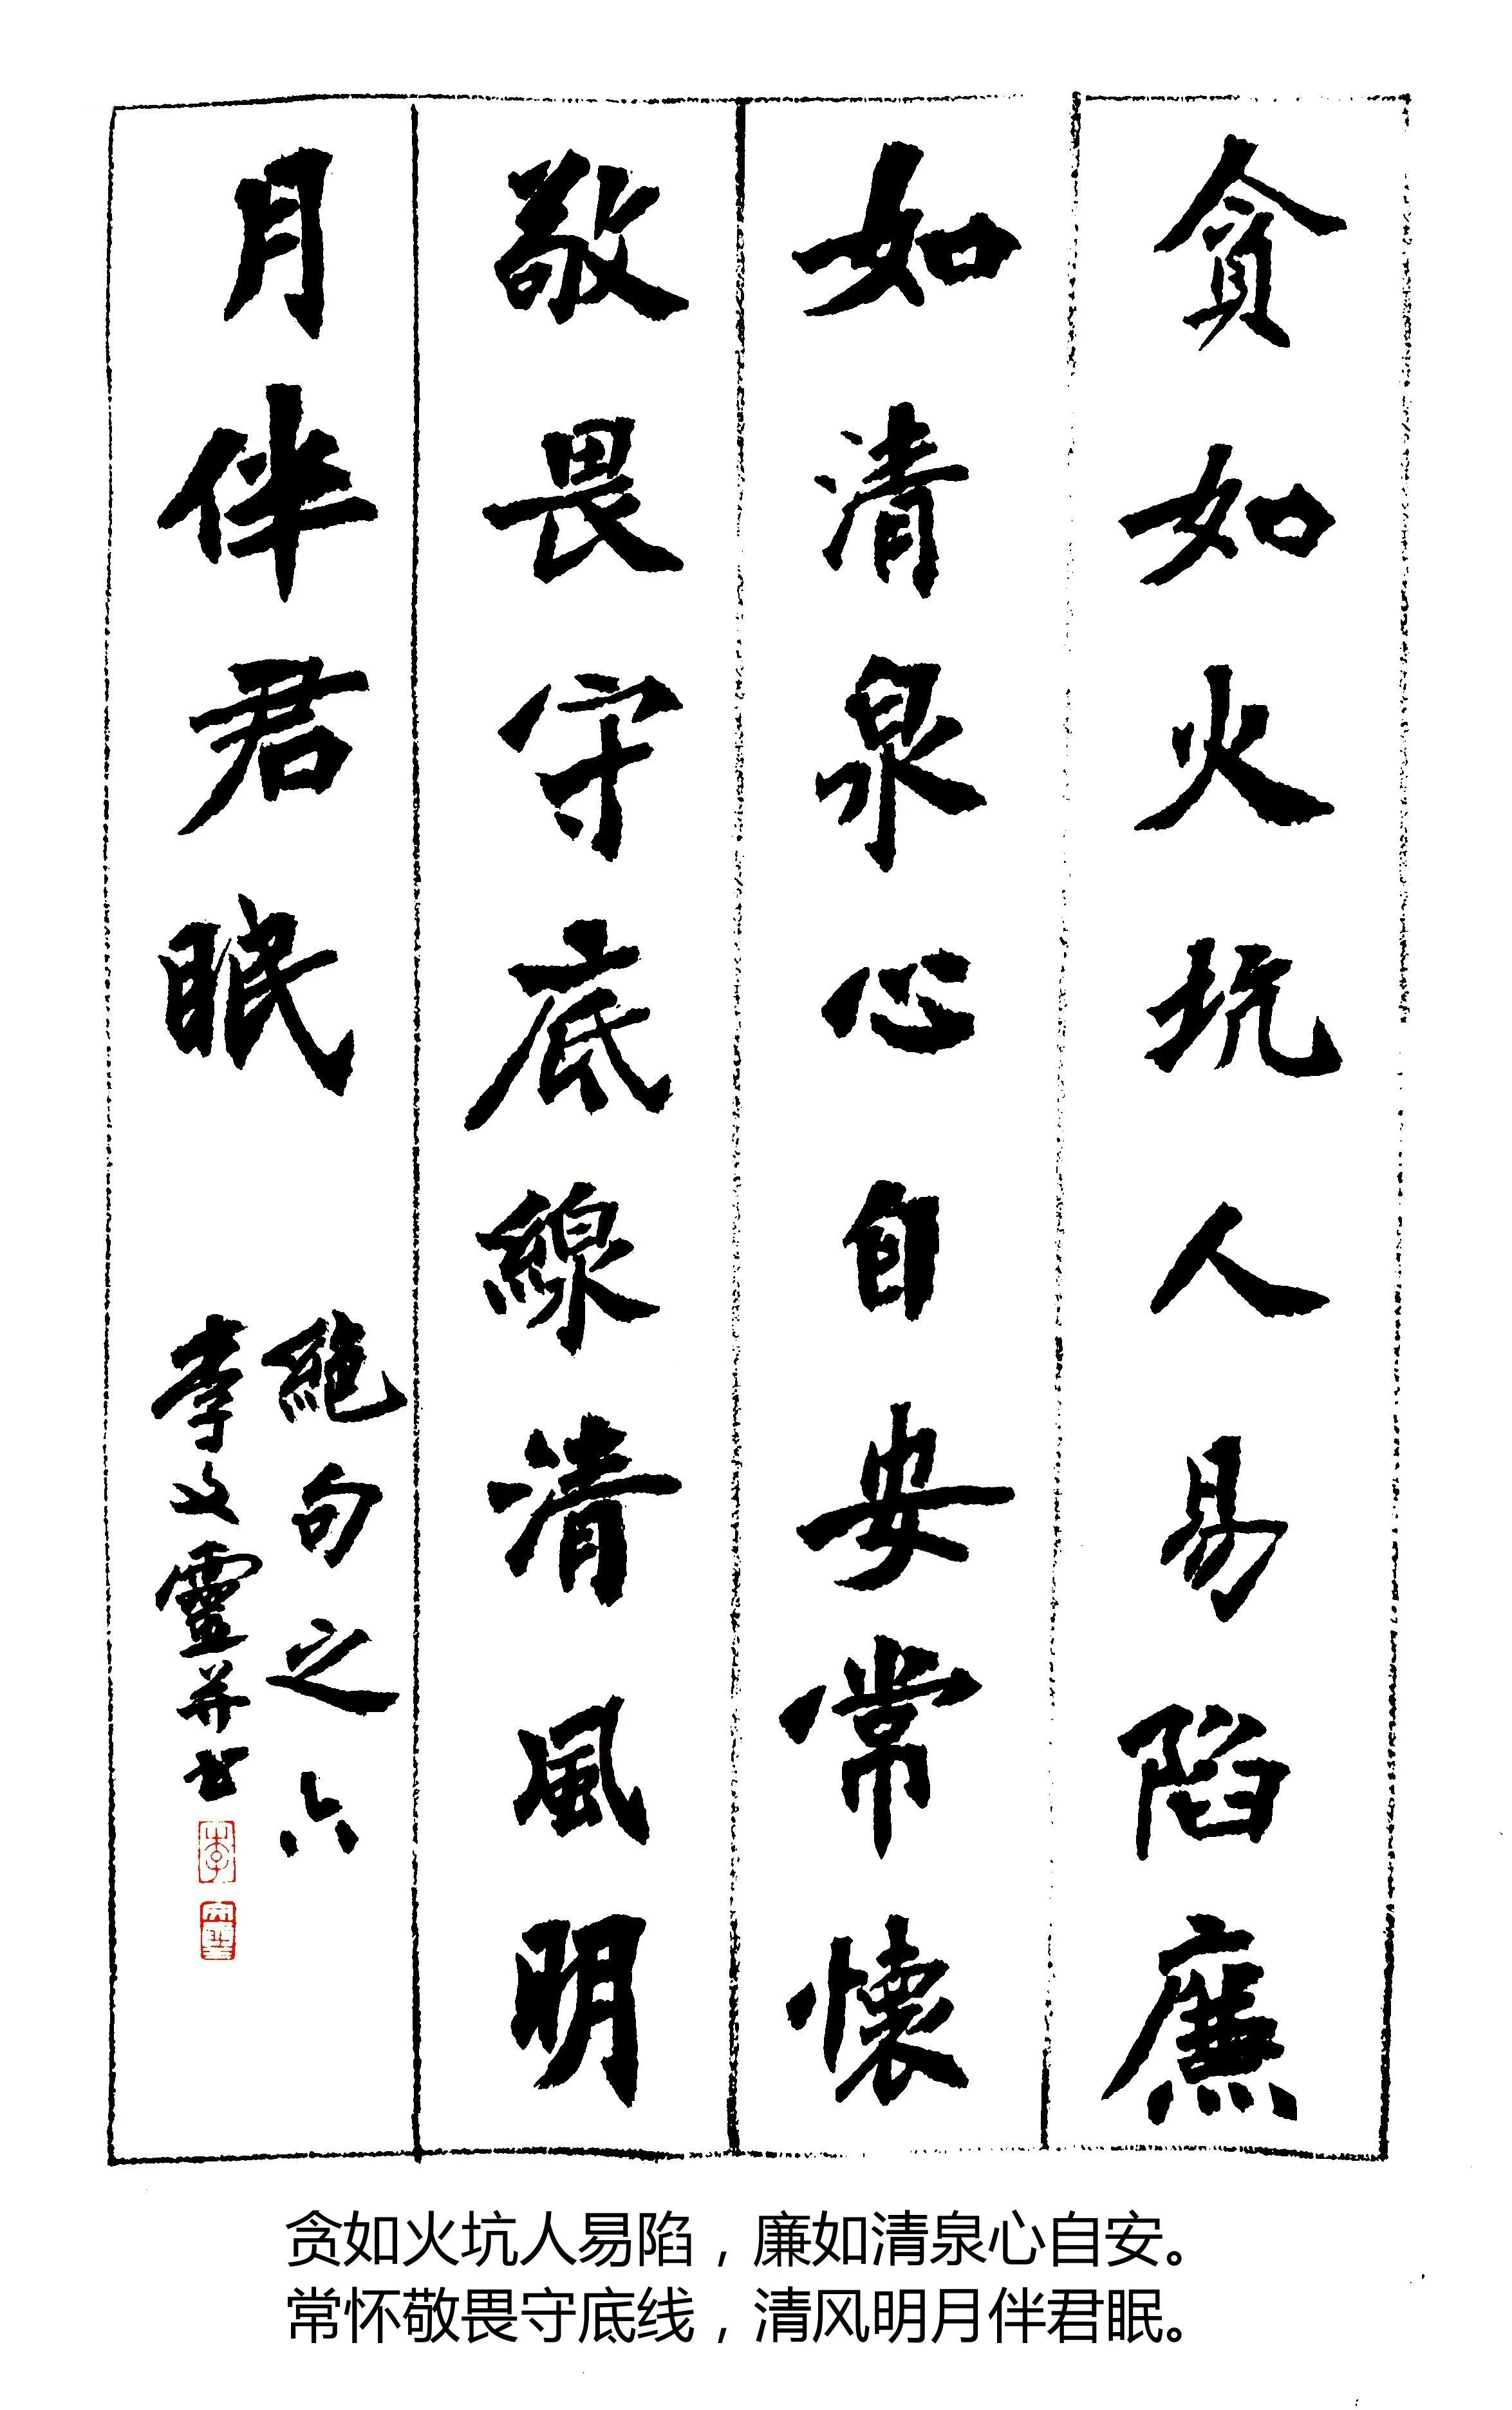 貪如火坑人易陷廉
如清泉心自安常懷
敬畏守底線清風明
月伴君眠
絕句之六
李文靈并书
李
文靈
贪如火坑人易陷，廉如清泉心自安。
常怀敬畏守底线，清风明月伴君眠。